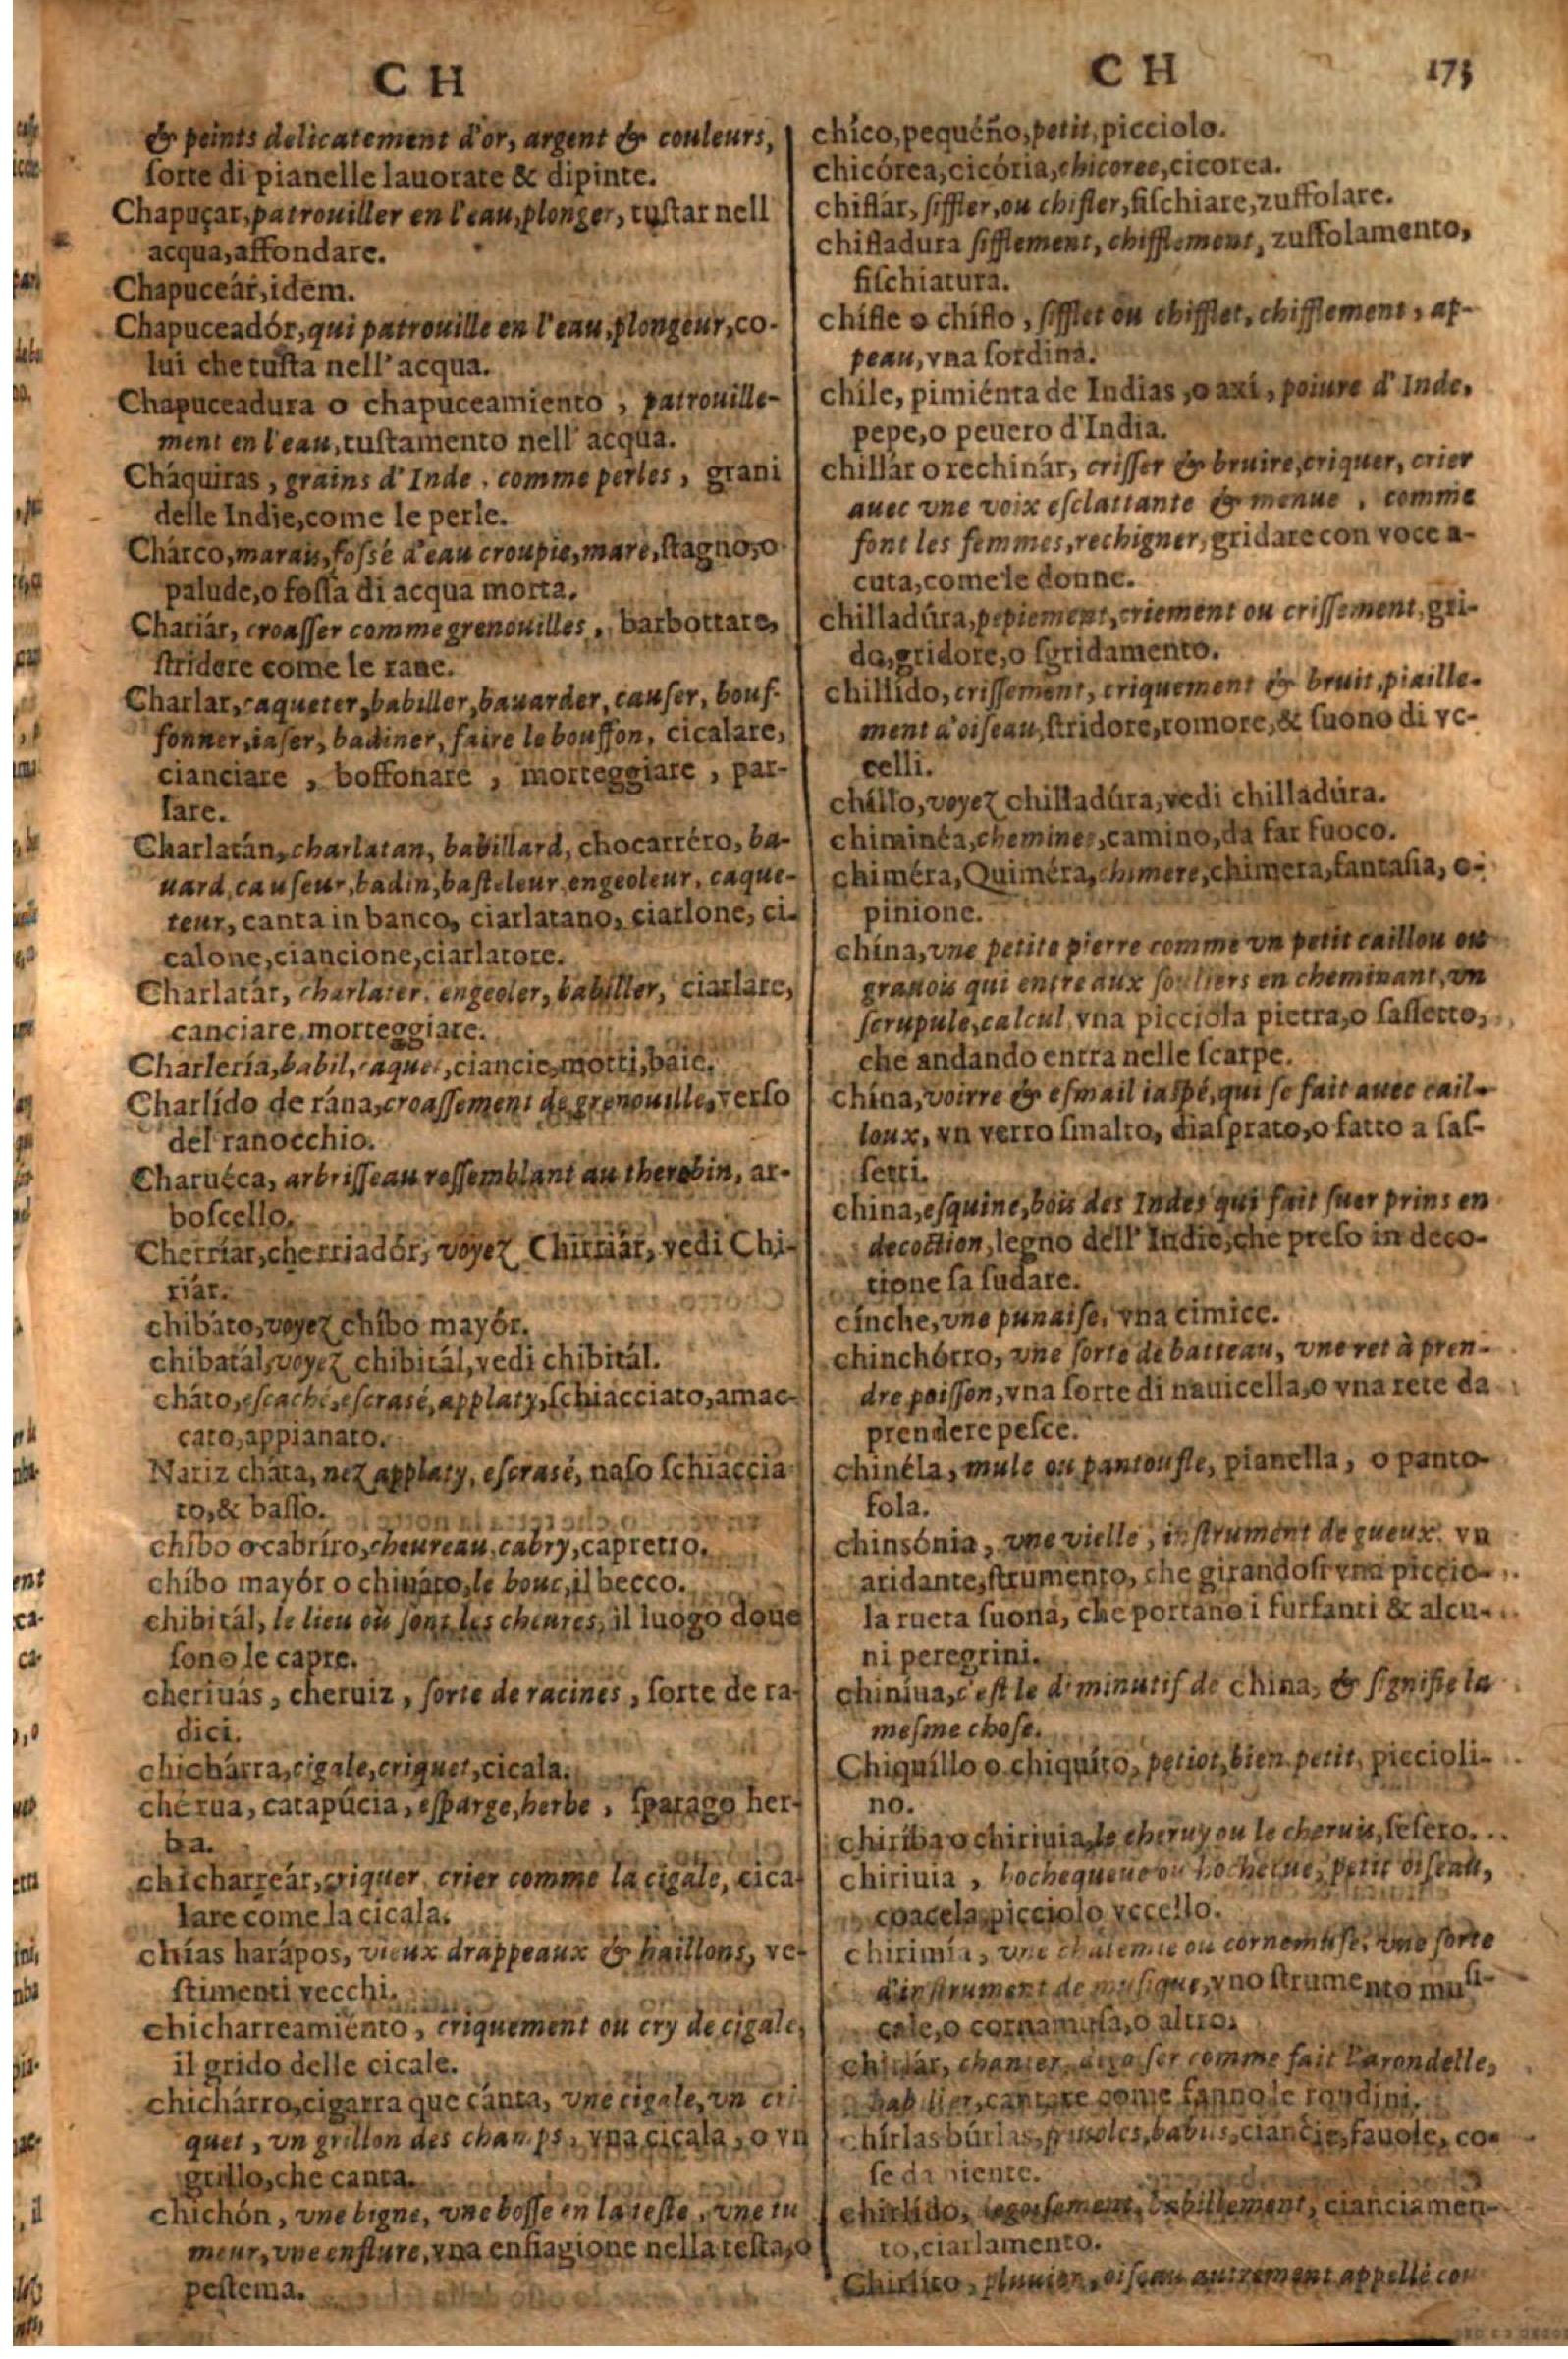 C H
& peints delicatement d'or, argent & couleurs,
ſorte di pianelle lauorate & dipinte.
Chapuçar, patrouiller en l'eau, plonger, tuſtar nell
acqua, affondare.
Chapuceár, idem.
Chapuceadór, qui patrouille en l'eau, plongeur, co-
lui che tuſta nell' acqua.
Chapuceadura o chapuceamiento, patrouille-
ment en l'eau, tuſtamento nell' acqua.
Cháquiras, grains d'Inde, comme perles, grani
delle Indie, come le perle.
Chárco, marais, foſsé d'eau croupie, mare, ſtagno, o
palude, o foſſa di acqua morta.
Chariár, croaſſer comme grenouilles, barbottare,
ſtridere come le rane.
Charlar, caqueter, babiller, bauarder, cauſer, bouf-
fonner, iaſer, badiner, faire le bouffon, cicalare,
cianciare, boffonare, motteggiare, par-
lare.
Charlatán, charlatan, babillard, chocarréro, ba-
uard, cauſeur, badin, baſteleur, engeoleur, caque-
teur, canta in banco, ciarlatano, ciarlone, ci-
calone, ciancione, ciarlatore.
Charlatár, charlater, engeoler, babiller, ciarlare,
canciare, morteggiare.
Charlería, babil, caquet, ciancie, motti, baie.
Charlído de rána, croaſſement de grenouille, verſo
del ranocchio.
Charuéca, arbriſſeau reſſemblant au therebin, ar-
boſcello.
Cherríar, cherriadór, voyez Chirriár, vedi Chi-
riár.
chibáto, voyez chíbo mayór.
chibatál, voyez chibitál, vedi chibitál.
cháto, eſcaché, eſcrasé, applaty, ſchiacciato, amac-
cato, appianato.
Nariz cháta, nez applaty, eſcrasé, naſo ſchiaccia
to, & baſſo.
chíbo o cabríto, cheureau, cabry, capretto.
chíbo mayór o chiuáto, le bouc, il becco.
chibitál, le lieu où ſont les cheures, il luogo doue
ſono le capre.
cheriuás, cheruiz, ſorte de racines, ſorte de ra-
dici.
chichárra, cigale, criquet, cicala.
chérua, catapúcia, eſparge, herbe, ſparago her-
ba.
chicharreár, criquer, crier comme la cigale, cica-
lare come la cicala.
chías harápos, vieux drappeaux & haillons, ve-
ſtimenti vecchi.
chicharreamiento, criquement ou cry de cigale,
il grido delle cicale.
chichárro, cigarra que cánta, vne cigale, vn cri
quet, vn grillon des champs, vna cicala, o vn
grillo, che canta.
chichón, vne bigne, vne boſſe en la teſte, vne tu
meur, vne enflure, vna enfiagione nella teſta, o
peſtema.
C H 175
chíco, pequéño, petit, picciolo.
chicórea, cicória, chicoree, cicorea.
chiflár, ſiffler, ou chifler, fiſchiare, zuffolare.
chifladura ſifflement, chifflement, zuffolamento,
fiſchiatura.
chífle o chíflo, ſifflet ou chifflet, chifflement, ap-
peau, vna ſordina.
chile, pimiénta de Indias, o axí, poiure d'Inde,
pepe, o peuero d'India.
chillár o rechinár, criſſer & bruire, criquer, crier
auec vne voix eſclattante & menue, comme
font les femmes, rechigner, gridare con voce a-
cuta, come le donne.
chilladúra, pepiement, criement ou criſſement, gri-
do, gridore, o ſgridamento.
chillído, criſſement, criquement & bruit, piaille-
ment d'oiſeau, ſtridore, romore, & ſuono di vc-
celli.
chíllo, voyez chilladúra, vedi chilladúra.
chiminéa, cheminee, camino, da far fuoco.
chiméra, Quiméra, chimere, chimera, fantaſia, o-
pinione.
chína, vne petite pierre comme vn petit caillou ou
grauois qui entre aux ſouliers en cheminant, vn
ſcrupule, calcul, vna picciola pietra, o ſaſſetto,
che andando entra nelle ſcarpe.
chína, voirre & eſmail iaſpé, qui ſe fait auec cail-
loux, vn verro ſmalto, diaſprato, o fatto a ſaſ-
ſetti.
china, eſquine, bois des Indes qui fait ſuer prins en
decoction, legno dell' Indie, che preſo in deco-
tione fa ſudare.
cínche, vne punaiſe, vna cimice.
chinchórro, vne ſorte de batteau, vne ret à pren-
dre poiſſon, vna ſorte di nauicella, o vna rete da
prendere peſce.
chinéla, mule ou pantoufle, pianella, o panto-
fola.
chinsónia, vne vielle, inſtrument de gueux, vn
aridante, ſtrumento, che girandoſi vna piccio-
la rueta ſuona, che portano i furfanti & alcu-
ni peregrini.
chiniua, c'eſt le diminutif de china, & ſignifie la
meſme choſe.
Chiquíllo o chiquíto, petiot, bien petit, piccioli-
no.
chiríba o chiriuia, le cheruy ou le cheruis, ſeſero.
chiriuia, hochequeue ou hochecue, petit oiſeau,
coacela, picciolo vccello.
chirimía, vne chalemie ou cornemuſe, vne ſorte
d'inſtrument de muſique, vno ſtrumento muſi-
cale, o cornamuſa, o altro.
chirlár, chanter, degoiſer comme fait l'arondelle,
babiller, cantare come fanno le rondini.
chírlas búrlas, friuoles, babils, ciancie, fauole, co-
ſe da niente.
chirlído, iegoiſement, babillement, cianciamen-
to, ciarlamento.
Chirlíto, pluuier, oiſeau autrement appellé cor